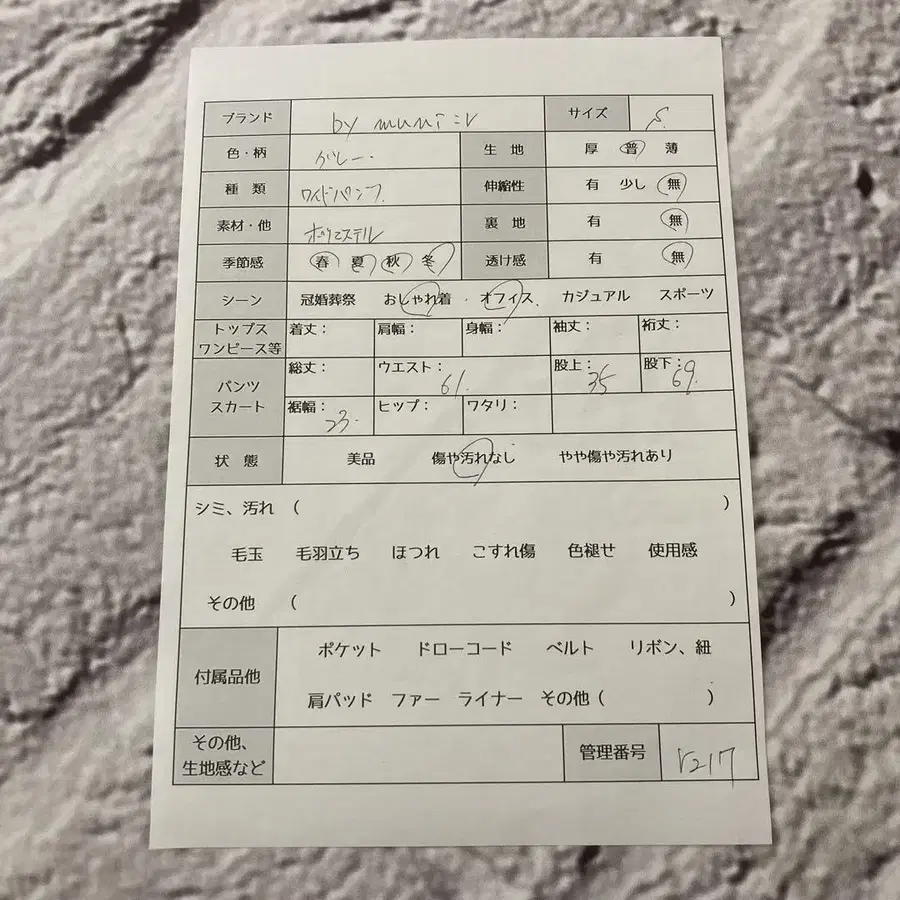 ブランド by muni:r サイズ S.
色・柄 グレー. 生 地 厚 普 薄
種 類 ワイドパンツ. 伸縮性 有 少し 無
素材・他 ポリエステル 裏 地 有 無
季節感 春 夏 秋 冬 透け感 有 無
シーン 冠婚葬祭 おしゃれ着 ・ オフィス、 カジュアル スポーツ
トップス ワンピース等 着丈： 肩幅： 身幅： 袖丈： 裄丈：
パンツ スカート 総丈： ウエスト： 61. 股上： 35 股下： 69.
裾幅： 23. ヒップ： ワタリ：
状 態 美品 傷や汚れなし やや傷や汚れあり
シミ、汚れ （ ）
毛玉 毛羽立ち ほつれ こすれ傷 色褪せ 使用感
その他 （ ）
付属品他 ポケット ドローコード ベルト リボン、紐
肩パッド ファー ライナー その他（ ）
その他、 生地感など 管理番号 r217